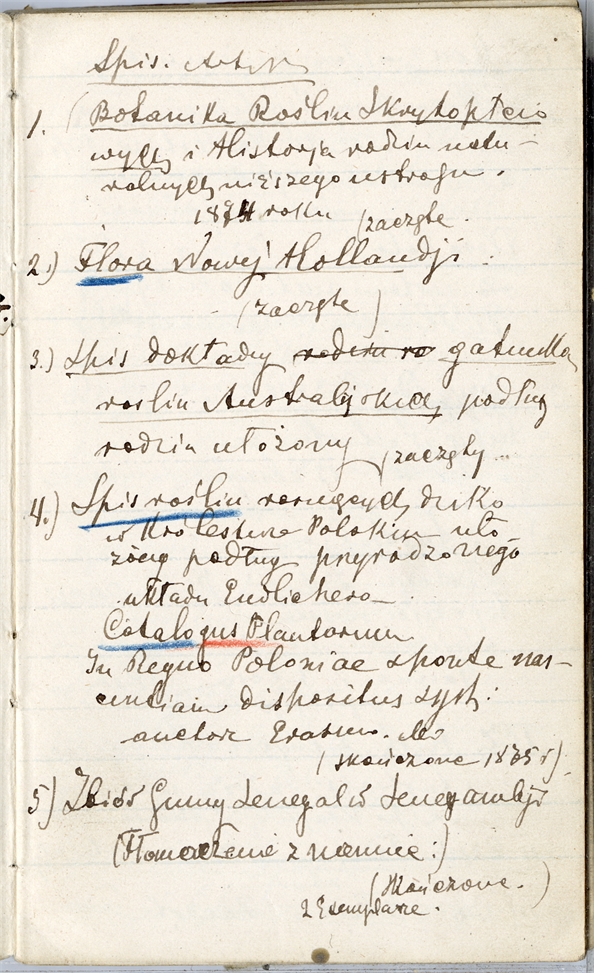 Spis.
1. (Botanika Roślin Skrytopłcio
wych i Historja rodzin natu-
ralnych niższego ustroju.
1874 roku (zaczęte.
2.) Flora Nowej Hollandji.
(zaczęte)
3.) Spis dokładny rodzin ro gatunków
roślin Australijskich, podług
rodzin ułożony (zaczęty
4.) Spis roślin rosnących dziko
w Królestwie Polskim uło-
żony podług przyrodzonego
układu Endlichera
Catalogus Plantarum
In Regno Poloniae sponte nas-
centiam dispositus syst:
auctore Erasmo.
(skończone 1875 r)
5) Zbiór Gumy Senegal w Senegambji
(Tłomaczenie z niemiec:)
(skończone.)
2 Exemplarze.